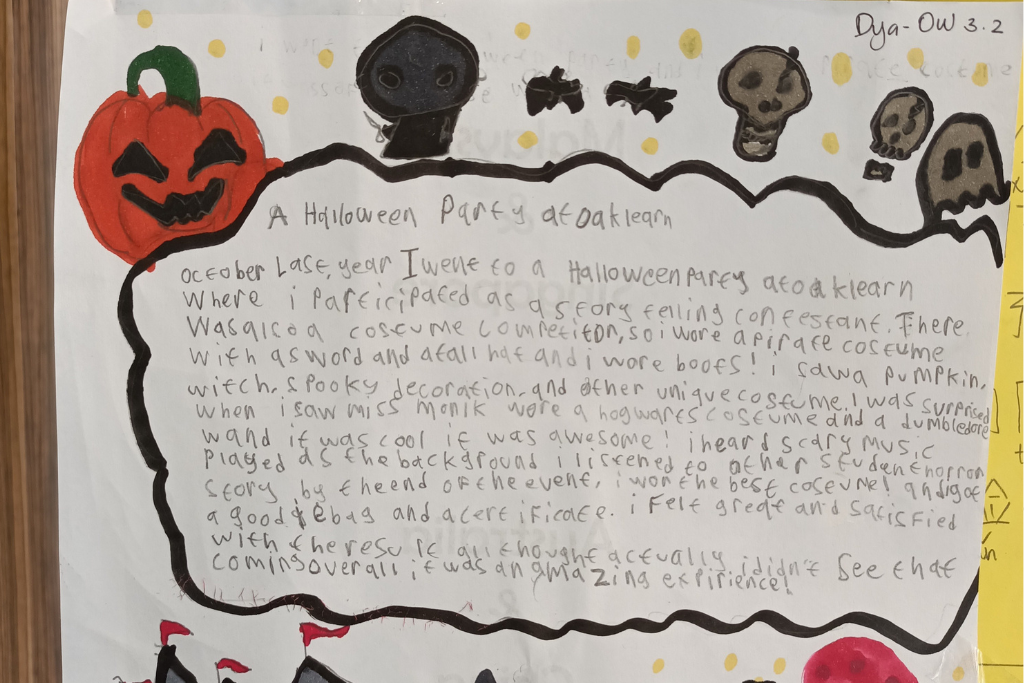 Dya-OW 3.2
A Halloween Party at oaklearn
october Last, year I went to a Halloween party at oaklearn
Where i participated as a story telling contestant. There
Was also a costume competiton, so i wore a pirate costume
with a sword and a tall hat and i wore boots! i saw a pumpkin,
witch, spooky decoration, and other unique costume. I was surprised
when i saw miss monik wore a hogwarts costume and a dumbledore
wand it was cool it was awesome! i heard scary music
played as the background i listened to other student horror
story by the end of the event, i won the best costume! and i got
a goodiebag and a certificate. i felt great and satisfied
with the result all thought actually i didn't see that
coming overall it was an amazing expirience!